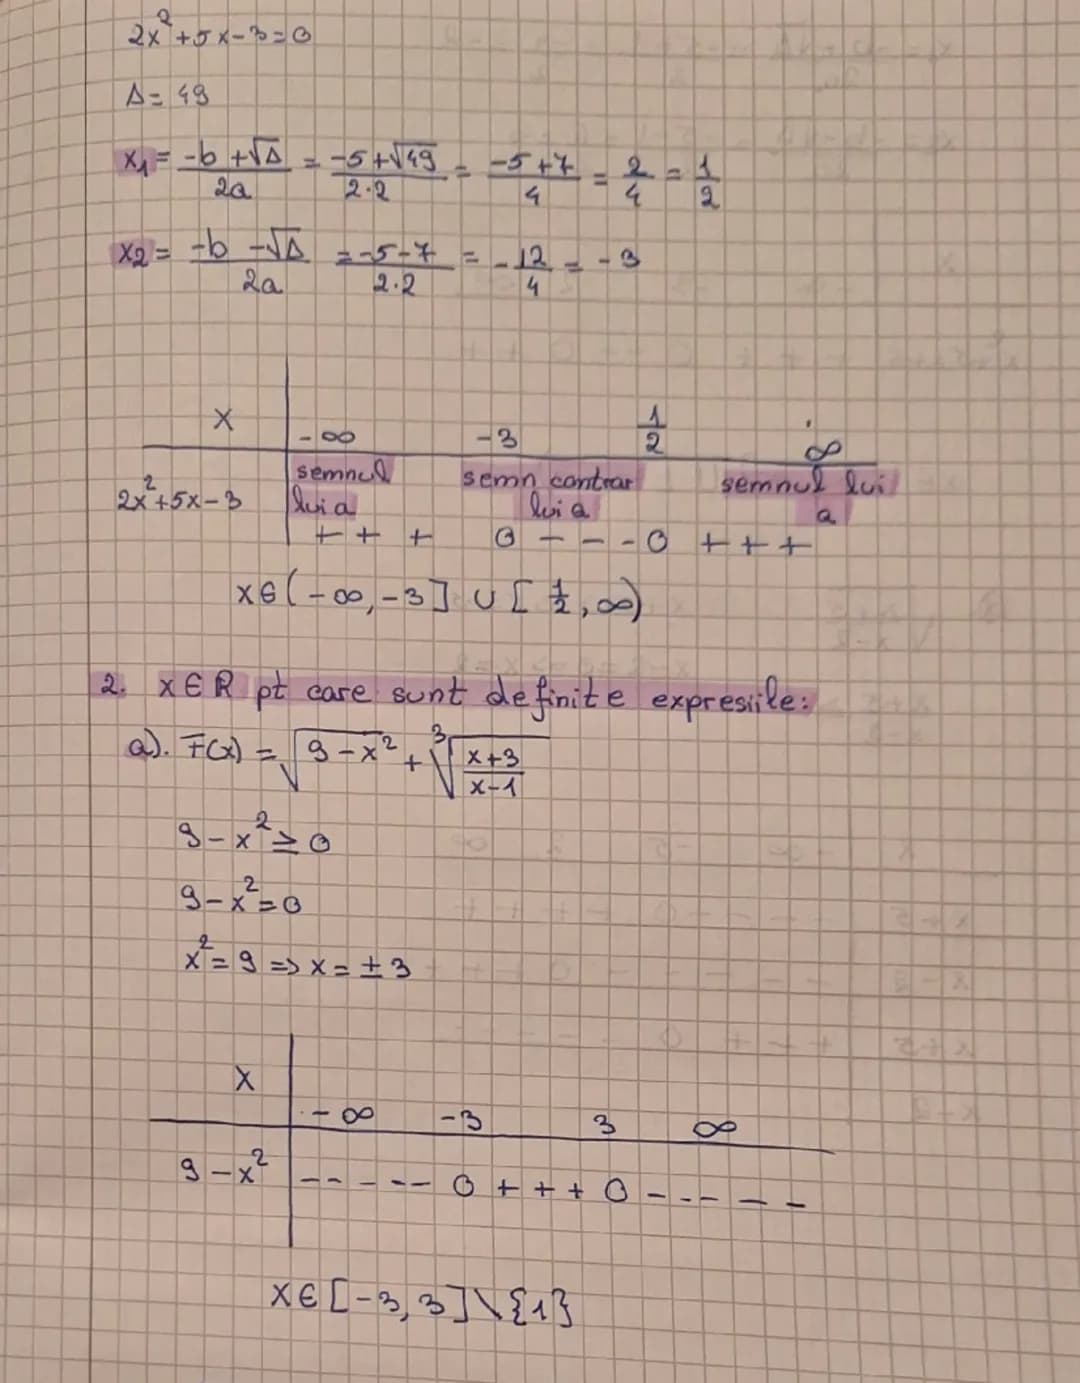 2x²+5x-3=0
Δ= 49
x₁= (-b+√Δ)/(2a) = (-5+√49)/(2·2) = (-5+7)/4 = 2/4 = 1/2
x2= (-b-√Δ)/(2a) = (-5-7)/(2·2) = -12/4 = -3
x | -∞ -3 1/2 ∞
2x²+5x-3 | semnul lui a semn contrar lui a semnul lui a
+ + + 0 - - - 0 + + +
x∈(-∞,-3] ∪ [1/2,∞)
2. x∈R pt care sunt definite expresiile:
a). F(x) = √(9-x²) + ³√((x+3)/(x-1))
9-x²≥0
9-x²=0
x²=9 => x=±3
x | -∞ -3 3 ∞
9-x² | - - - - - 0 + + + 0 - - - - -
x∈[-3,3]\{1}